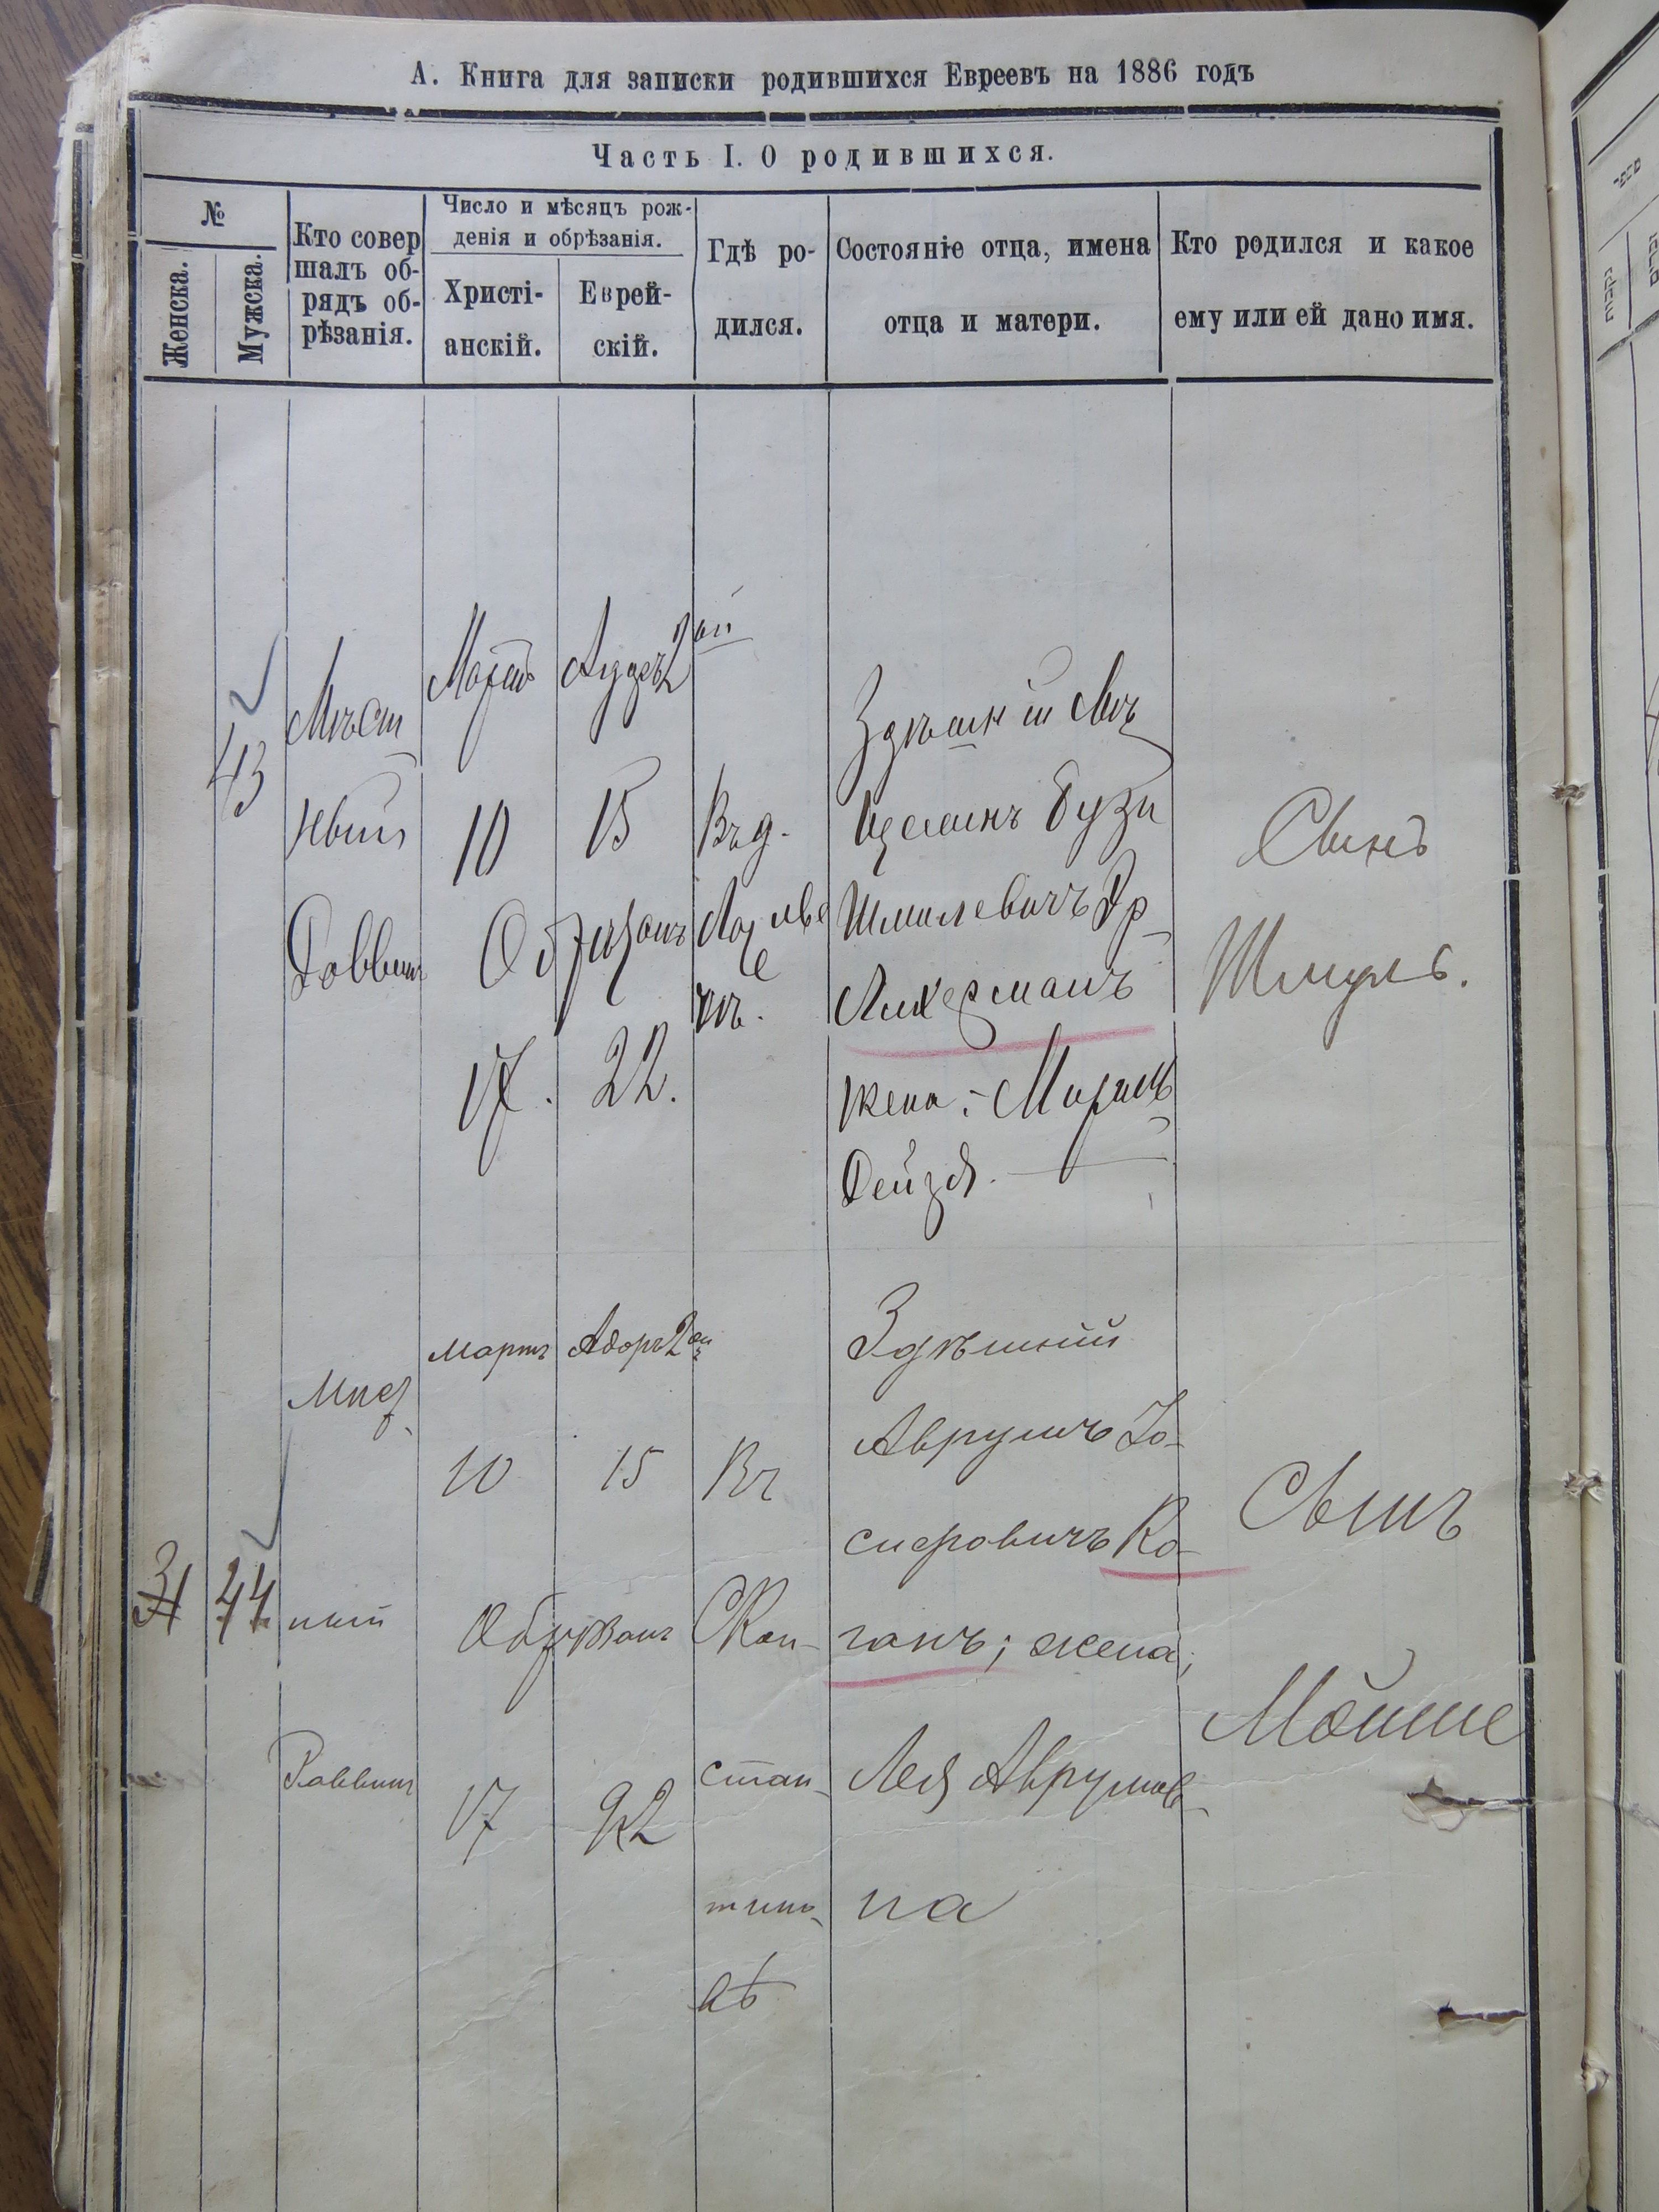 А. Книга для записки родившихся Евреевъ на 1886 годъ
Часть I. О родившихся.
№
Женска.
Мужска.
Кто совер
шалъ об-
рядъ об-
рѣзанія.
Число и мѣсяцъ рож-
денія и обрѣзанія.
Христі-
анскій.
Еврей-
скій.
Гдѣ ро-
дился.
Состояніе отца, имена
отца и матери.
Кто родился и какое
ему или ей дано имя.
43
Мѣст
ный
Раввинъ
Мартъ
10
Обрѣзанъ
17.
15
22.
Въ д.
Здѣшній Мѣ
щанинъ Бузи
Шмилевичъ
жена :- 
Рейзя.
Сынъ
Шмуль.
44
Мѣс
ный
Раввинъ
Мартъ
10
Обрѣзанъ
17
Адаръ 2ой
15
22
Въ
Кон-
стан-
тинов
кѣ
Здѣшній
Аврумъ Іо-
сифовичъ Ко-
ганъ; жена;
Лея Аврумов-
на
Сынъ
Мойше